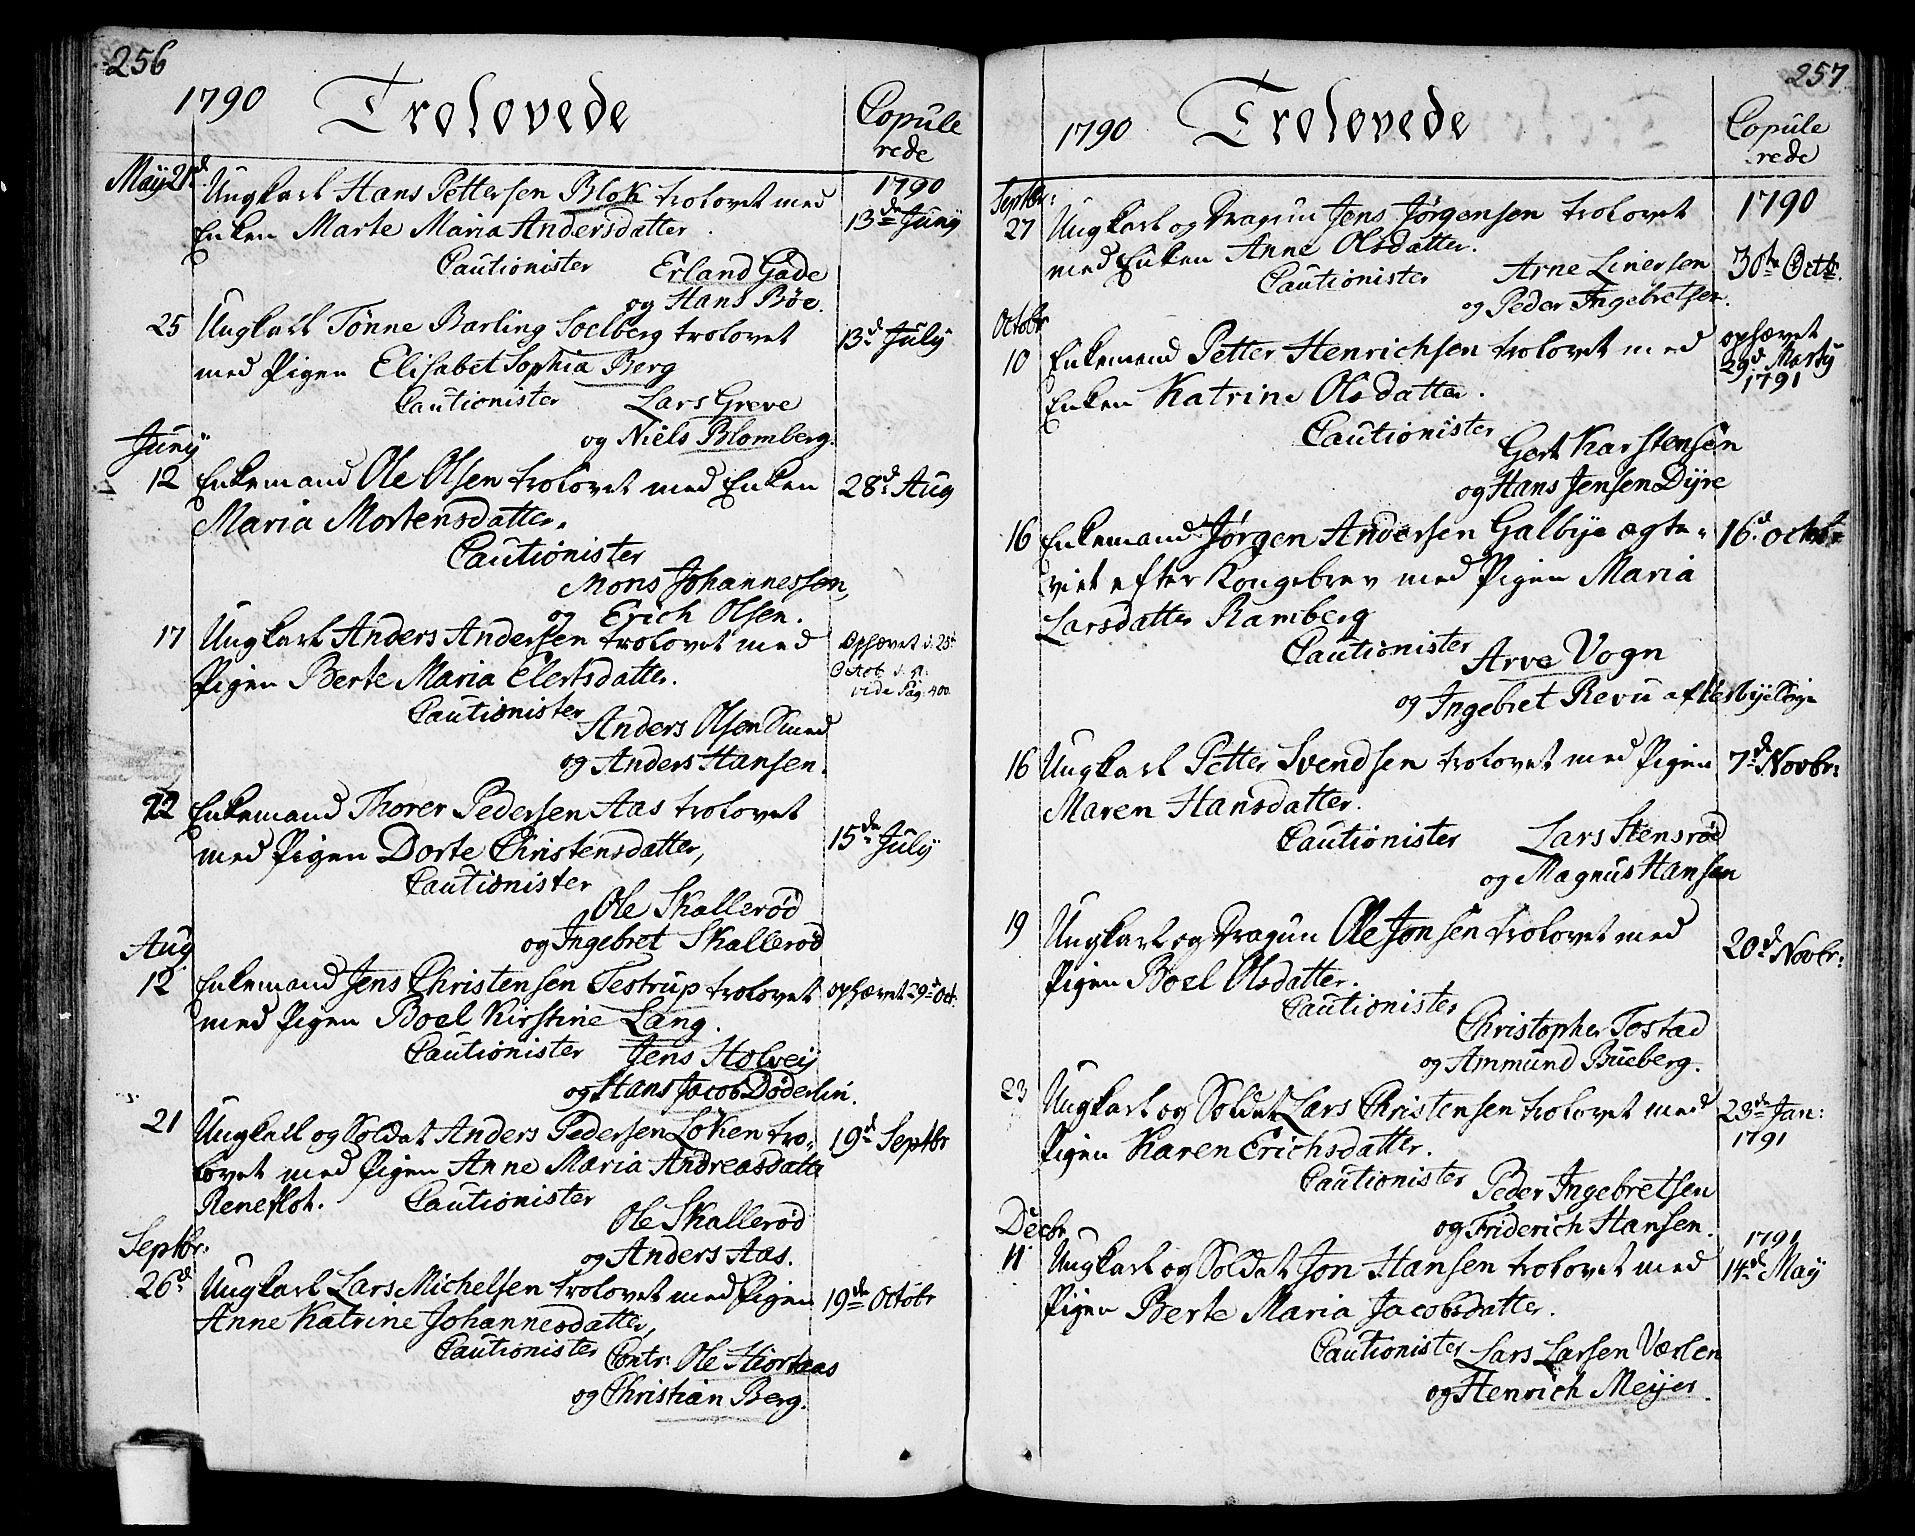 256
1790 Trolovede Copule
rede
1790
May 21d Ungkarl Hans Pettersen Blok trolovet med
Enken Marte Maria Andersdatter. 13de Juny
Cautionister Erland Gade
og Hans Böe.
25 Ungkarl Tönne Barling Soelberg trolovet 13d July
med Pigen Elisabet Sophia Berg
Cautionister Lars Greve
og Niels Blomberg.
Juny
12 Enkemand Ole Olsen trolovet med Enken 28d Aug
Maria Mortensdatter.
Cautionister
Mons Johannessen,
og Erich Olsen.
17 Ungkarl Anders Andersen trolovet med Ophævet d. 25d
Pigen Berte Maria Elertsdatter. Octob.
vide Pag. 400
Cautionister
Anders Olsen Smed
og Anders Hansen.
22 Enkemand Thorer Pedersen Aas trolovet
med Pigen Dorte Christensdatter, 15de July
Cautionister
Ole Skallerød
og Ingebret Skallerød
Aug
12 Enkemand Jens Christensen Testrup trolovet ophævet 29d Oct.
med Pigen Boel Kirstine Lang.
Cautionister Jens Holvey
og Hans Jacob Döderlin.
21 Ungkarl og Soldat Anders Pedersen Löken tro- 19d Septbr
lovet med Pigen Anne Maria Andreasdatte
Reneflot. Cautionister
Ole Skallerød
og Anders Aas.
Septbr:
26d Ungkarl Lars Michelsen trolovet med Pigen 19de Octobr
Anne Katrine Johannesdatter,
Cautionister Contr: Ole Hiortaas
og Christian Berg.
257
1790 Trolovede Copule
rede
Septbr: 1790
27 Ungkarl og Dragun Jens Jørgensen trolovet
med Enken Anne Olsdatter. 30te Octb.
Cautionister Arne Linersen
og Peder Ingebretsen.
Octobr
10 Enkemand Petter Henrichsen trolovet med ophævet
29d Marty
1791
Enken Katrine Olsdatter.
Cautionister
Gert Karstensen
og Hans Jensen Dyre
16 Enkemand Jørgen Andersen Galbye ægte- 16d octobr
viet efter Kongebrev med Pigen Maria
Larsdatter Ramberg
Cautionister
Arve Vogn
og Ingebret Revu af
16 Ungkarl Petter Svendsen trolovet med Pigen 7d Novbr:
Maren Hansdatter.
Cautionister Lars Stensrød
og Magnus Hansen
19 Ungkarl og Dragun Ole Jonsen trolovet med
Pigen Boel Olsdatter. 20d Novbr:
Cautionister
Christopher Tostad
og Ammund Bueberg.
23 Ungkarl og Soldat Lars Christensen trolovet med 23de Jan:
Pigen Karen Erichsdatter. 1791
Cautionister
Peder Ingebretsen
og Friderich Hansen.
Decbr 1791
11 Ungkarl og Soldat Jon Hansen trolovet med 14de May
Pigen Berte Maria Jacobsdatter.
Cautionister Lars Larsen Værlen
og Henrich Meyer.